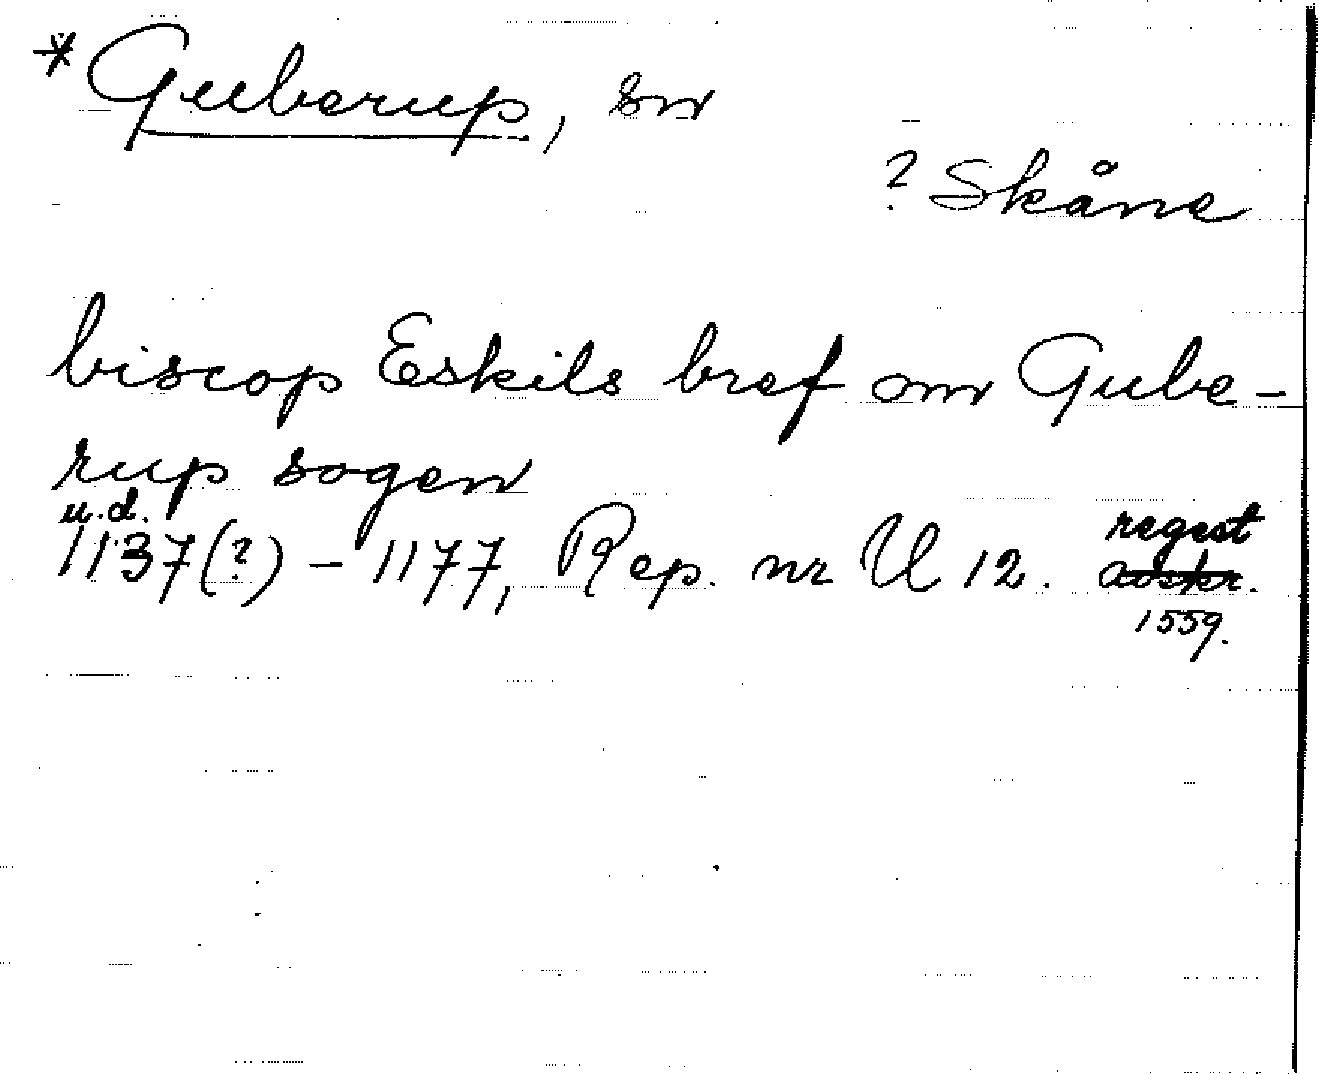 *Guberup, sn
? Skåne
biscop Eskils bref om Gube-
rup sogen
u.d.
1137(?) – 1177, Rep. nr U 12. regest
avskr.
1559.